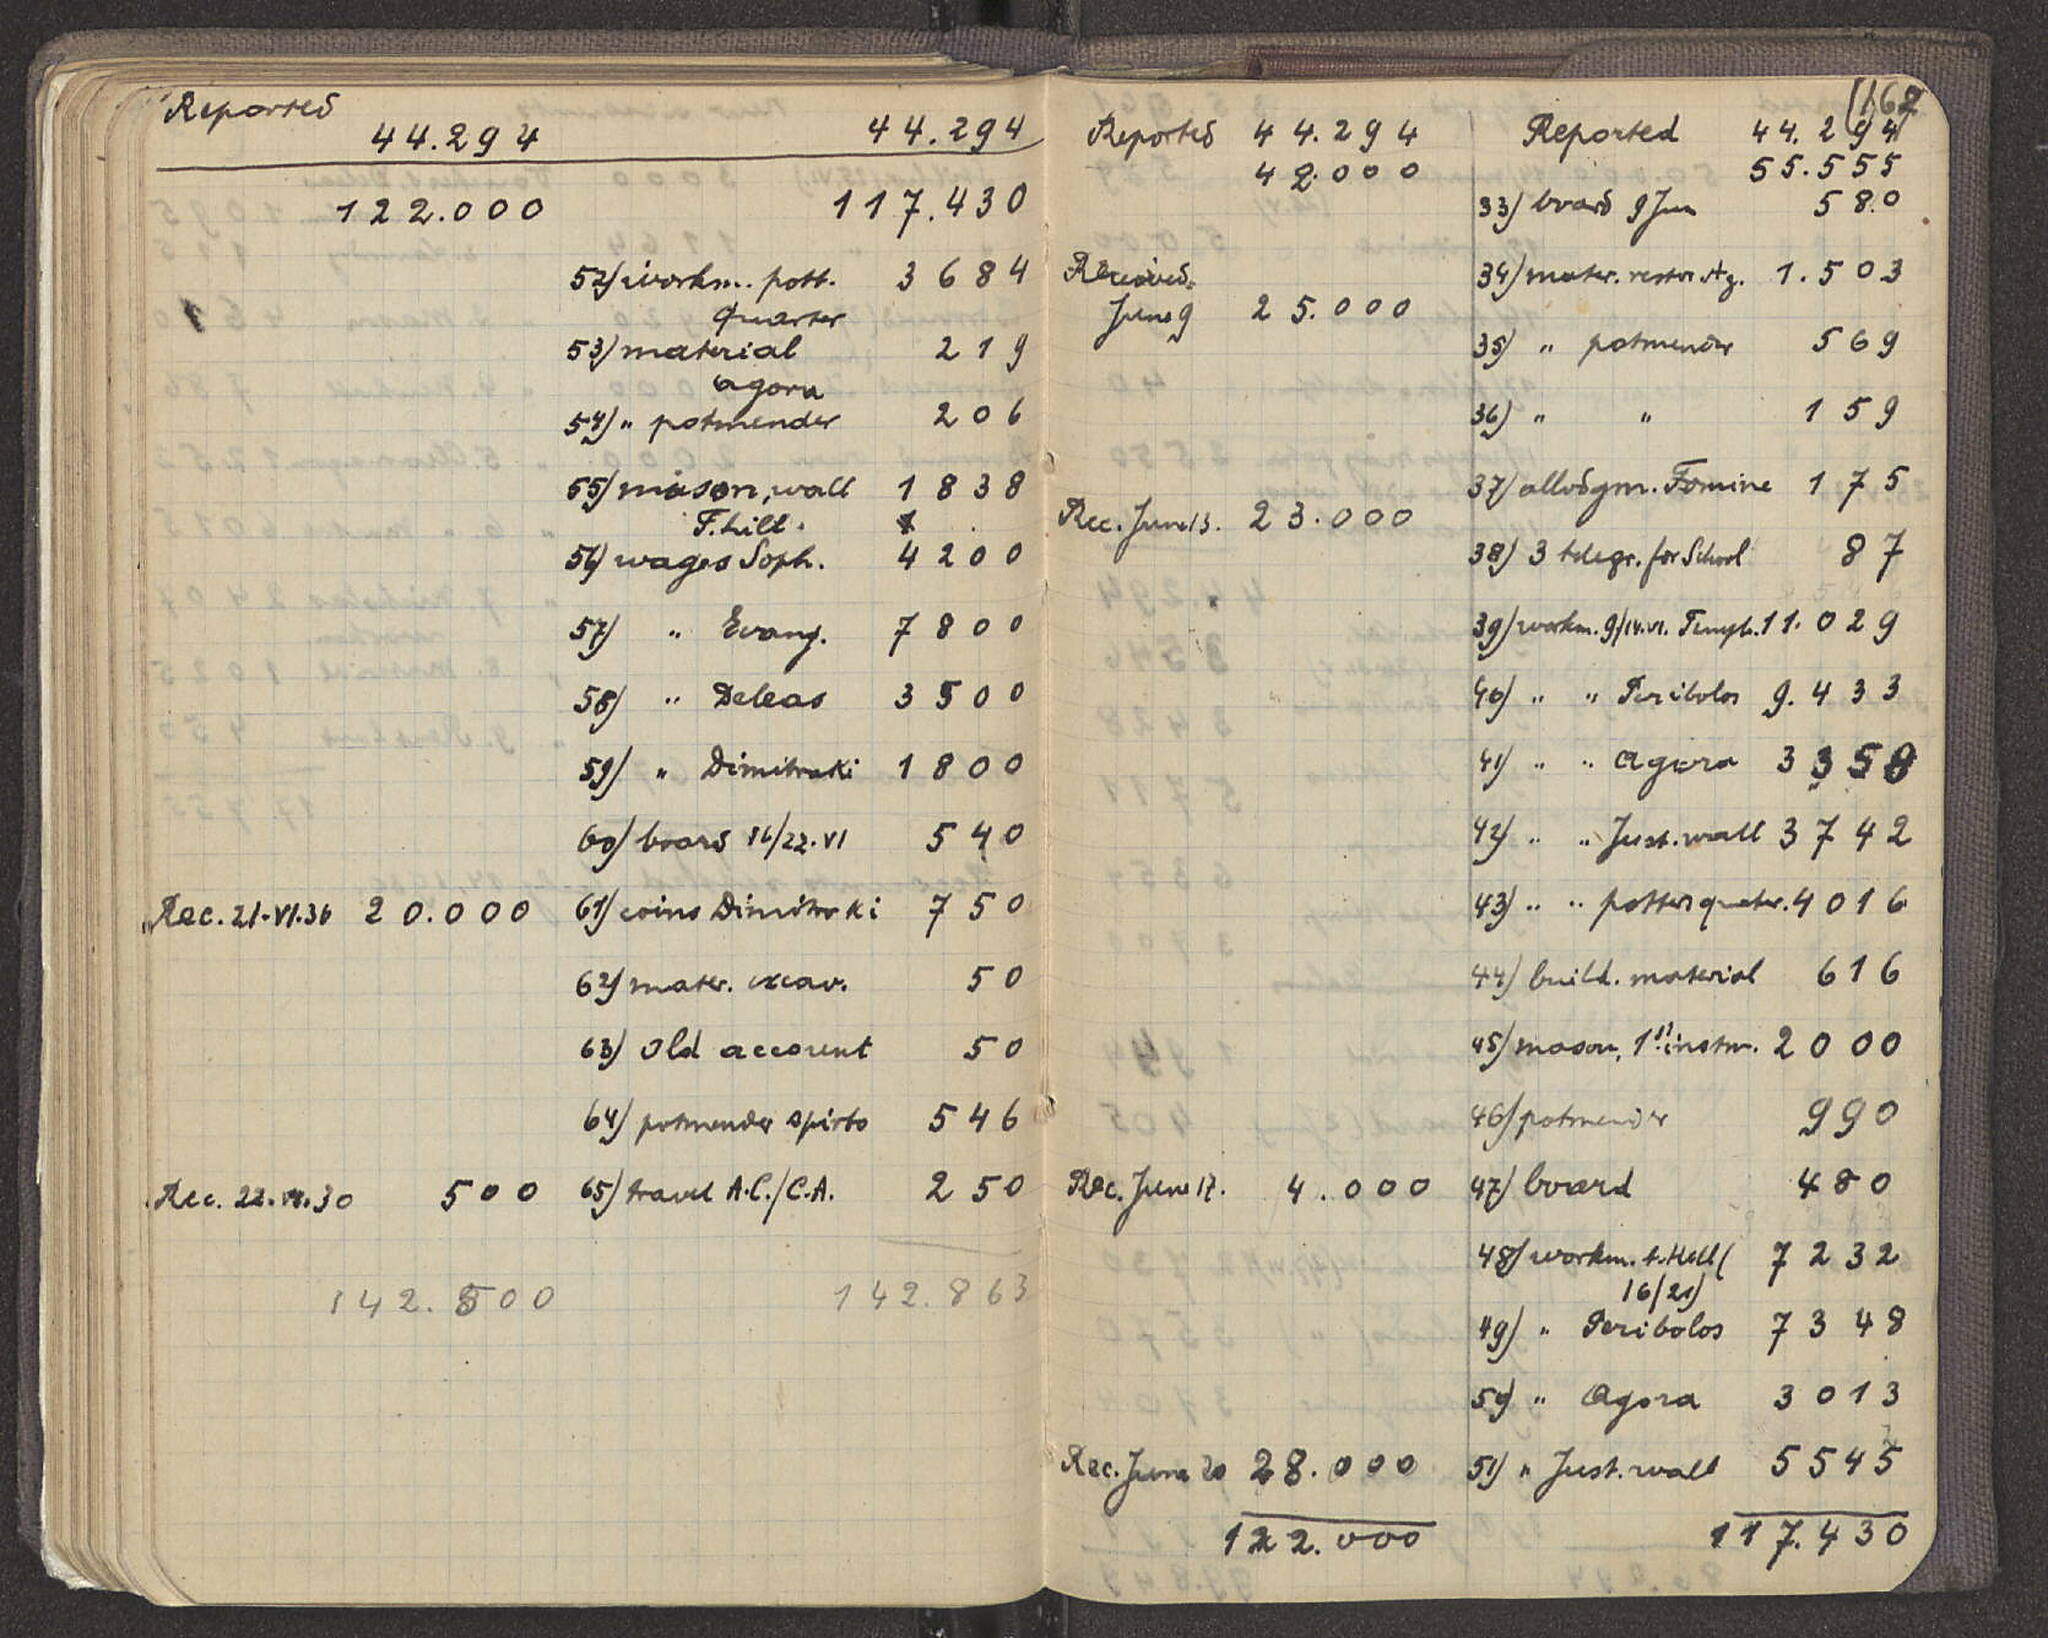 Reported
44.294 44.294
122.000 117.430
52) workm. pott. 3684
Quarter
53) material 219
agora
54) " potmender 206
55) mason, wall 1838
T. hill.
56) wages Soph. 4200
57) " Evang. 7800
58) " Deleas 3500
59) " Dimitraki 1800
60) board 16/22.VI 540
Rec. 21.VI.36 20.000 61) coins Dimitraki 750
62) mater. excav. 50
63) old account 50
64) potmender spirto 546
Rec. 22.VI.30 500 65) travel A.C./C.A. 250
142.500 142.863
162
Reported 44.294 Reported 44.294
42.000 55.555
33) board 9 Jun 580
Received
June 9 25.000 34) mater. restor. Ag. 1.503
35) " potmender 569
36) " " 159
37) allodgm. Fomine 175
Rec. June 13. 23.000
38) 3 telegr. for School 87
39) workm. 9/14.VI. Templ. 11.029
40) " " Peribolos 9.433
41) " " Agora 3358
42) " " Just. wall 3742
43) " " potters quater. 4016
44) build. material 616
45) mason, 1st instm. 2000
46) potmender 990
Rec. June 17. 4.000 47) board 480
48) workm. t. Hill ( 7232
16/21)
49) " Peribolos 7348
50) " Agora 3013
Rec. June 20 28.000 51) " Just. wall 5545
122.000 117.430